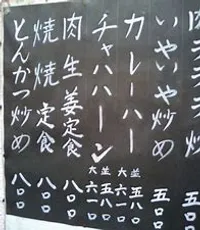 五〇〇
いやいや炒め 五〇〇
カレーハー 並五八〇 大六一〇
チャハハーン 並五八〇 大六一〇
肉生姜定食 八〇〇
焼焼定食 八〇〇
とんかつ炒め 八〇〇